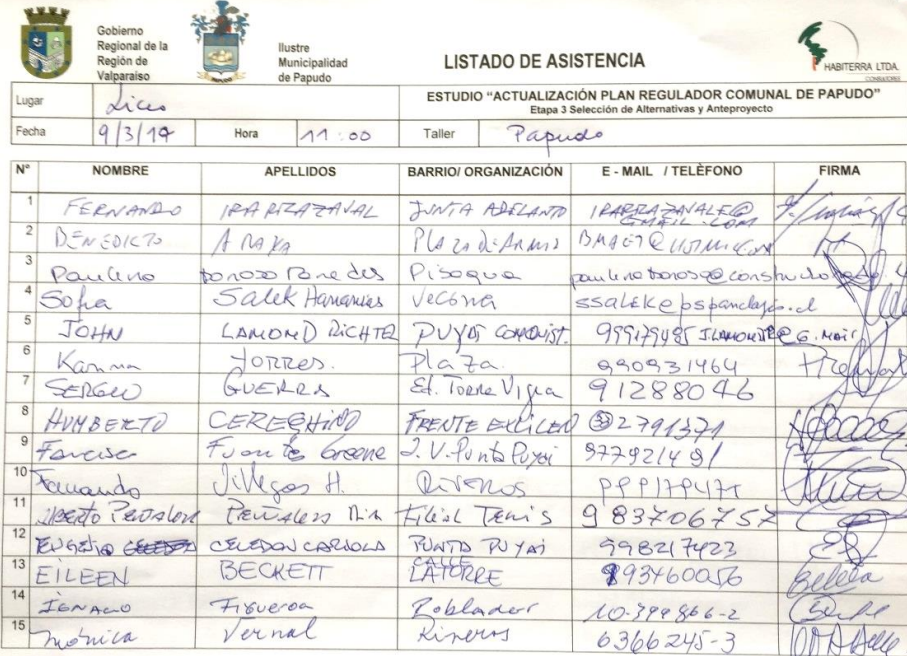 Gobierno
Regional de la
Región de
Valparaiso
Ilustre
Municipalidad
de Papudo
PAPUDO
LISTADO DE ASISTENCIA
HABITERRA LTDA.
CONSULTORES
Lugar Liceo
ESTUDIO “ACTUALIZACIÓN PLAN REGULADOR COMUNAL DE PAPUDO”
Etapa 3 Selección de Alternativas y Anteproyecto
Fecha 9/3/19 Hora 11:00 Taller Papudo
N° NOMBRE APELLIDOS BARRIO/ ORGANIZACIÓN E - MAIL / TELÈFONO FIRMA
1 FERNANDO IRARRAZAVAL JUNTA ADELANTO IRARRAZAVALF@
GMAIL.COM
2 BENEDICTO ARAYA PLAZA DE ARMAS
3 Paulina Donoso Paredes Pisagua
4 Sofia Salek Hananias Vecina
5 JOHN LAMOND RICHTER PUYAI CONQUIST. 999179485
6 Karina TORRES. Plaza. 990931464
7 SERGIO GUERRA Ed. Torre Vigia 91288046
8 HUMBERTO CERECHINO FRENTE EX LICEO 32 2791371
9 Francisca Fuentes Greene J.V. Punta Puyai 977921491
10 Fernando Villegas H. Riveros
11 PEÑALOZA Filial Tenis 983706757
12 EUGENIO CELEDON CARIOLA PUNTA PUYAI 998217423
CALLE
13 EILEEN BECKETT LATORRE 93460056
14 IGNACIO Figueroa Poblador 10-399866-2
15 Mónica Vernal Riveros 6366245-3